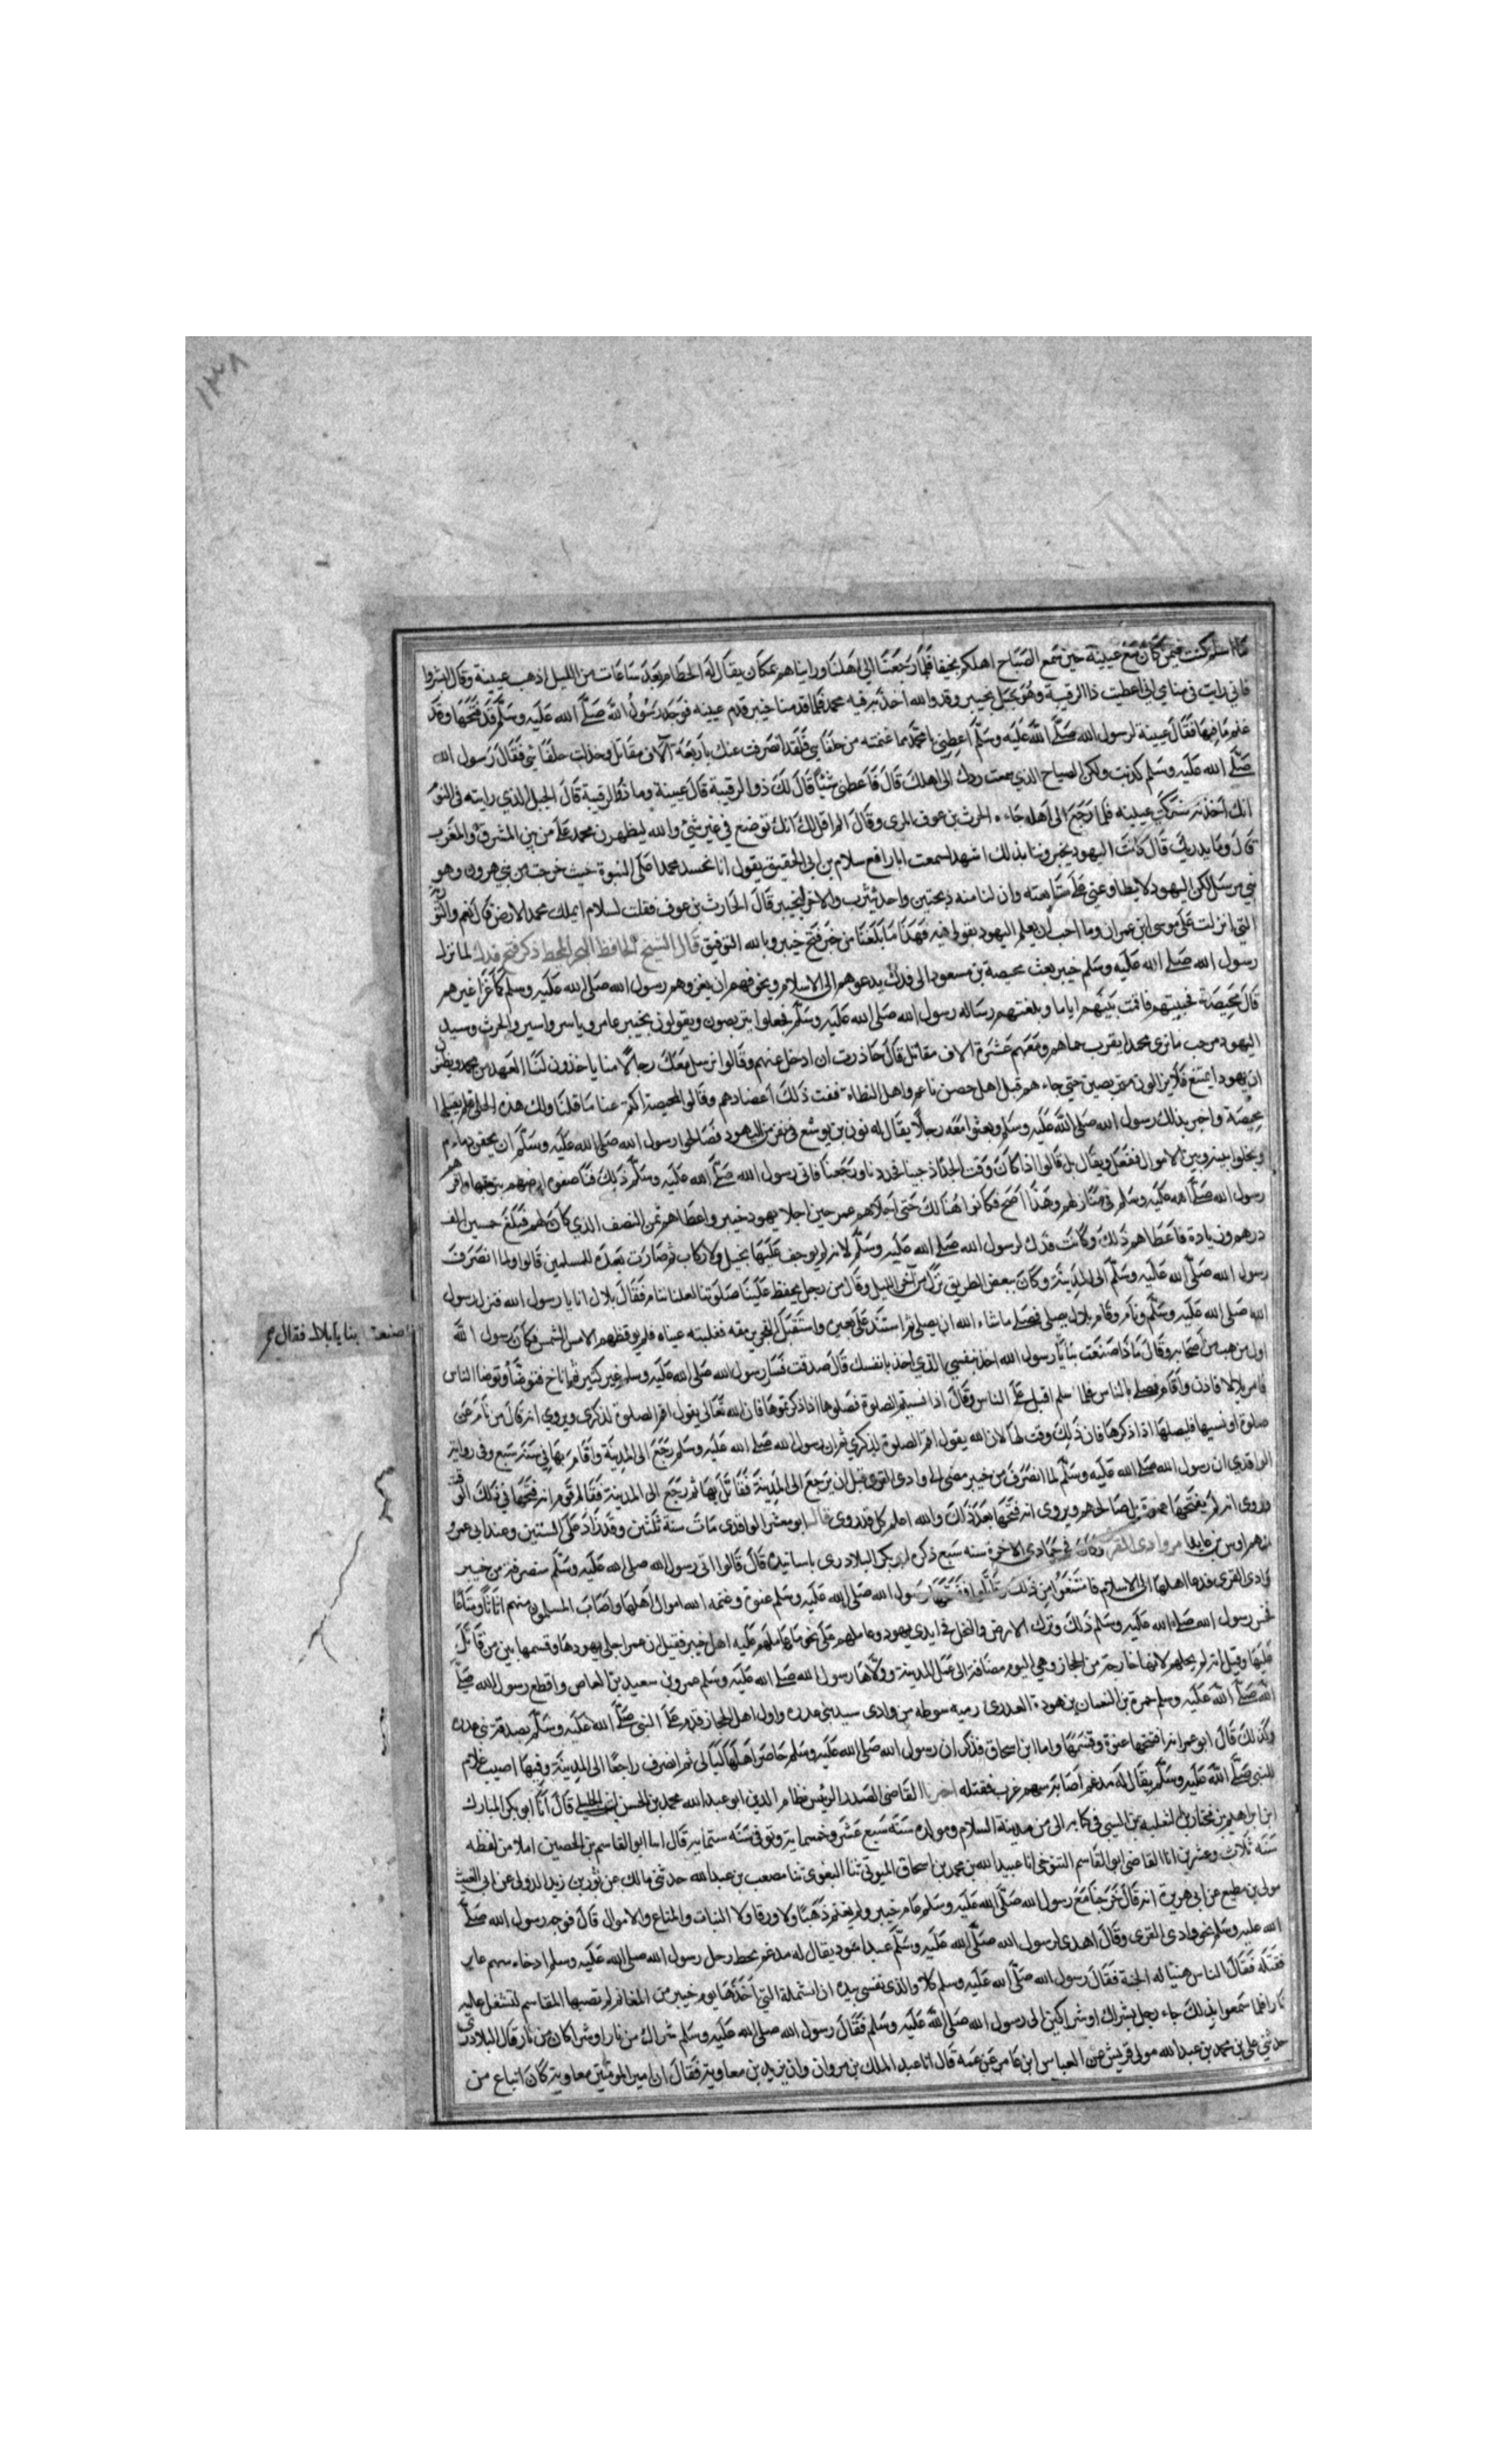 ١٣٨
فيمن كان مع عيينة حين سمع الصياح اهلكم بحيفا فلما رجعنا الى اهلنا وراينا هم عكان يقال له الحطام بعد ساعات من الليل اذهب عيينة وقال ابشروا
فاني رايت في منامي اني اعطيت ذا الرقيبة وهو جبل بخيبر وقد والله اخذ برقبة محمد فلما قدمنا خيبر قدم عيينة فوجد رسول الله صلى الله عليه وسلم قد فتحها وقد
غنم ما فيها فقال عيينة لرسول الله صلى الله عليه وسلم اعطني يا محمد مما غنمته من حلفائي فلقد انصرفت عنك باربعة آلاف مقاتل وخذلت حلفائي فقال رسول الله
صلى الله عليه وسلم كذبت ولكن الصياح الذي سمعت ردك الى اهلك قال فاعطني شيئا قال لك ذو الرقيبة قال عيينة وما ذو الرقيبة قال الجبل الذي رايته في النوم
انك اخذته عيينه فلما رجع الى اهله جاءه الحرث بن عوف المري وقال الم اقل لك انك توضع في غير شئ والله ليظهرن محمد على من بين المشرق والمغرب
قال وما يدريك قال كانت اليهود يخبروننا بذلك اشهد لسمعت ابا رافع سلام بن ابي الحقيق يقول انا نحسد محمدا على النبوة حيث خرجت من بني هرون وهو
نبي مرسل لكن اليهود لا يطاوعني على متابعته وان لنا منه ذبحتين واحد بيثرب والاخر بخيبر قال الحارث بن عوف فقلت لسلام ايملك محمد الارض قال نعم والتورية
التي انزلت على موسى ابن عمران وما احب ان يعلم اليهود بقولي فيه فهذا ما بلغنا من خبر فتح خيبر وبالله التوفيق قال الشيخ الحافظ ذكر فتح فدك لما نزل
رسول الله صلى الله عليه وسلم خيبر بعث محيصة بن مسعود الى فدك يدعوهم الى الاسلام ويخوفهم ان يغزوهم رسول الله صلى الله عليه وسلم كما غزا غيرهم
قال محيصة فجيتهم فاقمت بينهم اياما وبلغتهم رسالة رسول الله صلى الله عليه وسلم فجعلوا يتربصون ويقولون بخيبر عامر وياسر واسير والحرث وسيد
اليهود مرحب ما نرى محمدا يقرب حماهم ومعهم عشرة الاف مقاتل قال حاذرت ان ادخل عنهم وقالوا نرسل معك رجالا منا ياخذون لنا العهد من محمد ويظنون
ان يهود تمتنع فلا يزالون متربصين حتى جاءهم قبل اهل حصن ناعم واهل النطاة ففت ذلك اعضادهم وقالوا لمحيصة اكتم عنا ما قلنا ولك هذه الحلي فلم يقبلها
محيصة واخبر بذلك رسول الله صلى الله عليه وسلم وبعثوا معه رجلا يقال له نون بن يوشع في نفر من اليهود فصالحوا رسول الله صلى الله عليه وسلم ان يحقن دماءهم
ويخلوا بينه وبين الاموال ففعل ويقال بل قالوا اذا كان وقت الجذاذ جينا فجددنا ورجعنا فاتى رسول الله صلى الله عليه وسلم ذلك فناصفوه ارضهم بتربتها واقرهم
رسول الله صلى الله عليه وسلم في منازلهم وهذا اصح فكانوا هنالك حتى اجلاهم عمر حين اجلا يهود خيبر واعطاهم ثمن النصف الذي كان لهم فبلغ خمسين الف
درهم وزيادة فاعطاهم ذلك وكانت فدك لرسول الله صلى الله عليه وسلم لانه لم يوجف عليها بخيل ولا ركاب ثم صارت بعده للمسلمين قالوا ولما انصرف
رسول الله صلى الله عليه وسلم الى المدينة وكان ببعض الطريق نزل من آخر الليل وقال من رجل يحفظ علينا صلوتنا لعلنا ننام فقال بلال انا يا رسول الله فنزل رسول
الله صلى الله عليه وسلم ونام وقام بلال يصلي فصلى ما شاء الله ان يصلي ثم استند على بعيره واستقبل الفجر يرمقه فغلبته عيناه فلم يوقظهم الا مس الشمس فكان رسول الله
اول من هب من اصحابه وقال ماذا صنعت بنا يا رسول الله اخذ بنفسي الذي اخذ بانفسك قال صدقت فسار رسول الله صلى الله عليه وسلم غير كثير ثم اناخ فتوضا وتوضا الناس
صنعت بنا يا بلال فقال
فامر بلالا فاذن واقام فصلى بالناس فلما سلم اقبل على الناس وقال اذا نسيتم الصلوة فصلوها اذا ذكرتموها فان الله تعالى يقول اقم الصلوة لذكرى ويروى انه قال من نام عن
صلوة او نسيها فليصلها اذا ذكرها فان ذلك وقت لها لان الله يقول اقم الصلوة لذكري ثم ان رسول الله صلى الله عليه وسلم رجع الى المدينة واقام بها في سنة سبع وفي رواية
الواقدي ان رسول الله صلى الله عليه وسلم لما انصرف من خيبر مضى الى وادى القرى قبل ان يرجع الى المدينة فقاتل بها ثم رجع الى المدينة فقال قوم انه فتحها في ذلك الوقت
وروى انه لم يفتحها عنوة بل صالحهم ويروى انه فتحها بعد ذلك والله اعلم كل قد روى قال ابو معشر الواقدى مات سنة ثلثين وقد زاد على الستين
امر وادى القرى وكان في جمادى الاخرة سنه سبع ذكره ابو بكر البلادرى باسانيده قال قالوا اتى رسول الله صلى الله عليه وسلم منصرفه من خيبر
وادى القرى فدعا اهلها الى الاسلام فامتنعوا من ذلك وقاتلوا ففتحها رسول الله صلى الله عليه وسلم عنوة وغنمه الله اموال اهلها واصاب المسلمون منهم اثاثا ومتاعا
فخمس رسول الله صلى الله عليه وسلم ذلك وترك الارض والنخل في ايدى يهود وعاملهم على نحو ما عامل عليه اهل خيبر فقيل ان عمر اجلى يهودها وقسمها بين من قاتل
عليها وقيل انه لم يجلهم لانها خارجة من الحجاز وهي اليوم مضافة الى عمل المدينة وولاها رسول الله صلى الله عليه وسلم عمرو بن سعيد بن العاص واقطع رسول الله صلى
الله صلى الله عليه وسلم حمزة بن النعمان بن هوذة العذرى رمية سوطه من وادى واول اهل الحجاز قدم على النبي صلى الله عليه وسلم بصدقة بني عذره
وكذلك قال ابو عمر انه افتتحها عنوة وقسمها واما ابن اسحاق فذكر ان رسول الله صلى الله عليه وسلم حاصر اهلها ليالي ثم انصرف راجعا الى المدينة وفيها اصيب غلام
للنبي صلى الله عليه وسلم يقال له مدعم اصابه سهم غرب فقتله اخبرنا القاضي الصدر الرئيس نظام الدين ابو عبد الله محمد بن الحسن بن الخليلي قال انا ابو بكر المبارك
ابن ابراهيم بن مختار بن تغلب بن السيبي في كتابه الى من مدينة السلام ومولده سنة سبع عشر وخمسماية وتوفي سنة ستماية قال انا ابو القاسم بن الحصين املا من لفظه
سنة ثلاث وعشرين انا القاضي ابو القاسم التنوخي انا عبيد الله بن محمد بن اسحاق المتوثي ثنا البغوى ثنا مصعب بن عبد الله حدثني مالك عن ثور بن زيد الدولي عن ابي الغيث
مولى بن مطيع عن ابي هريرة انه قال خرجنا مع رسول الله صلى الله عليه وسلم عام خيبر ولم يغنم ذهبا ولا ورقا ولا الثياب والمتاع والاموال قال فوجه رسول الله صلى
الله عليه وسلم نحو وادى القرى وقال اهدى لرسول الله صلى الله عليه وسلم عبدا اسود يقال له مدعم يحط رحل رسول الله صلى الله عليه وسلم اذ جاءه سهم عاير
فقتله فقال الناس هنيئا له الجنة فقال رسول الله صلى الله عليه وسلم كلا والذى نفسي بيده ان الشملة التي اخذها يوم خيبر من المغانم لم تصبها المقاسم لتشتعل عليه
نارا فلما سمعوا بذلك جاء رجل بشراك او شراكين الى رسول الله صلى الله عليه وسلم فقال رسول الله صلى الله عليه وسلم شراك من نار او شراكان من نار قال البلاذري
حدثني علي بن محمد بن عبد الله مولى قريش عن العباس ابن عامر عن عمه قال انا عبد الملك بن مروان وان يزيد بن معاوية فقال ان امير المومنين معاوية كان ابتاع من